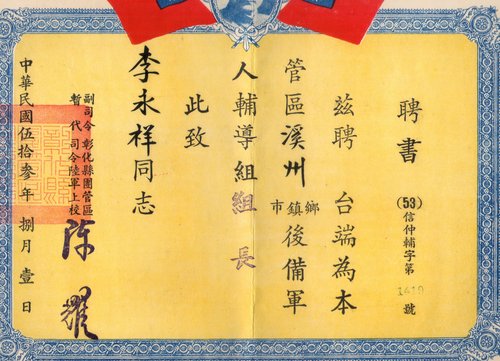 聘書
(53)信仲輔字第1419號
茲聘 台端為本
管區溪州鄉鎮市後備軍
人輔導組組長
此致
李永祥同志
副司令 彰化縣團管區
暫代 司令陸軍上校
陳耀
中華民國伍拾叁年捌月壹日